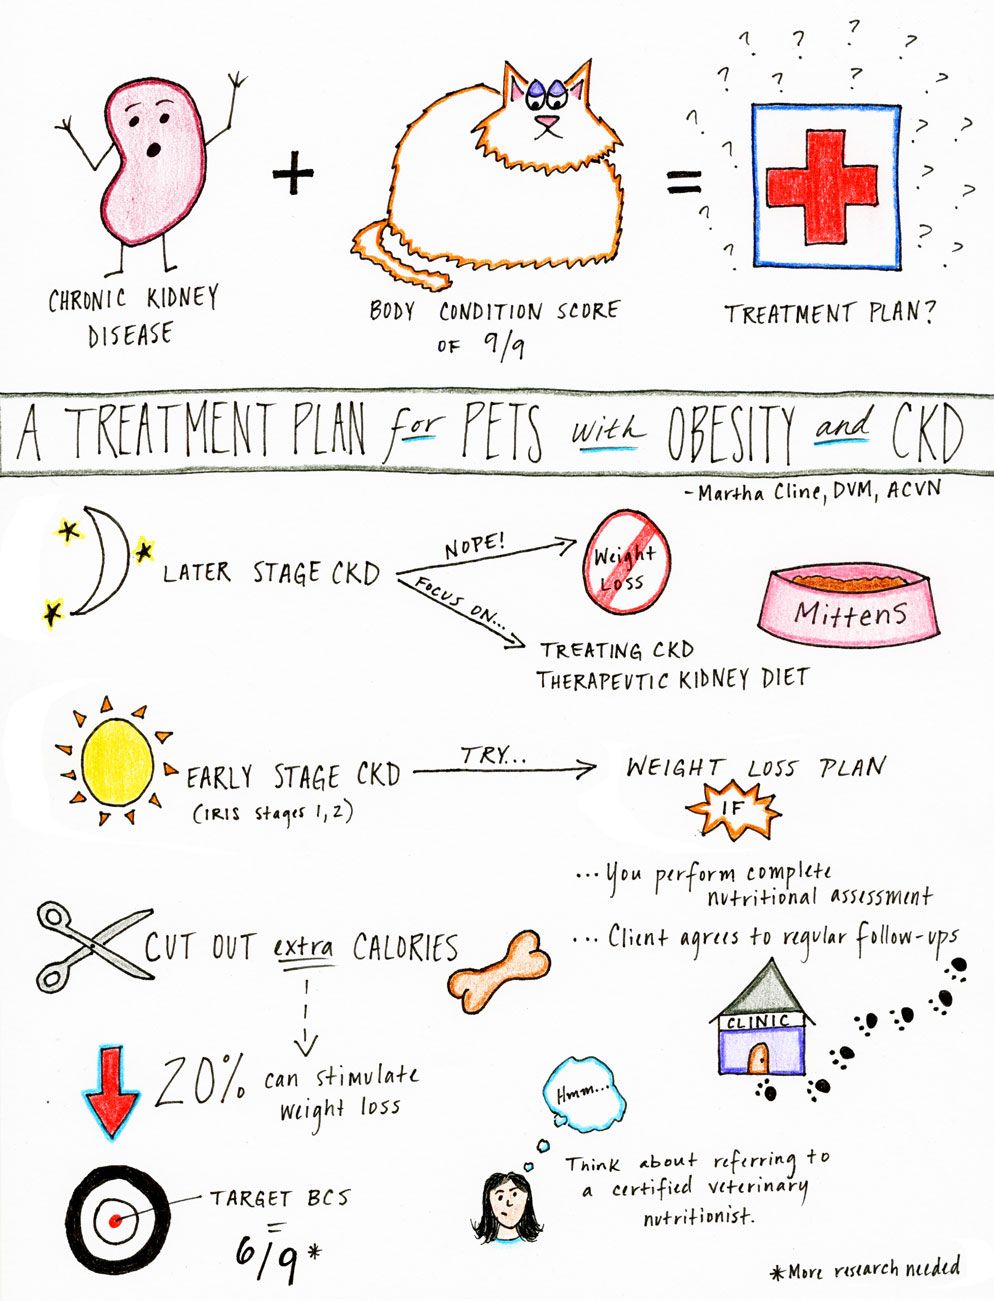 ? ? ? ? ? ? ? ? ? ? ? ? ? ? ? ? ? ? ?
+ =
CHRONIC KIDNEY
DISEASE
BODY CONDITION SCORE
OF 9/9
TREATMENT PLAN?
A TREATMENT PLAN for PETS with OBESITY and CKD
-Martha Cline, DVM, ACVN
LATER STAGE CKD
NOPE!
Weight
Loss
FOCUS ON...
TREATING CKD
THERAPEUTIC KIDNEY DIET
Mittens
EARLY STAGE CKD
(IRIS stages 1,2)
TRY...
WEIGHT LOSS PLAN
IF
...You perform complete
nutritional assessment
...Client agrees to regular follow-ups
CUT OUT extra CALORIES
CLINIC
20% can stimulate
weight loss
Hmm...
Think about referring to
a certified veterinary
nutritionist.
TARGET BCS
=
6/9*
*More research needed